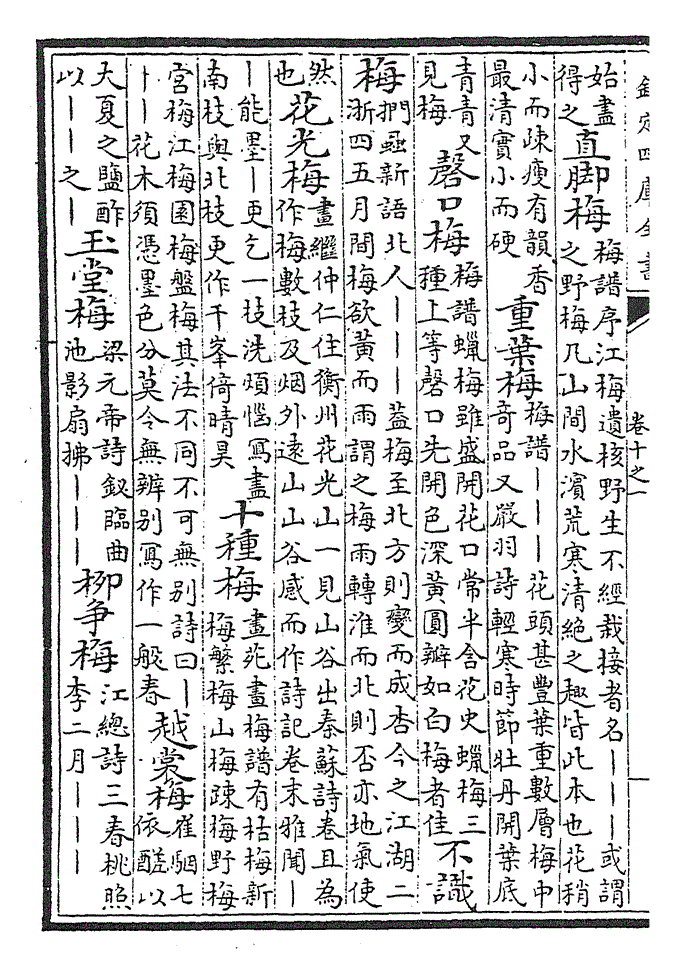 欽定四庫全書
卷十之一
始盡
得之
直脚梅
梅譜序江梅遺核野生不經栽接者名｜｜｜或謂
之野梅凡山間水濱荒寒清絕之趣皆此本也花稍
小而疎瘦有韻香
最清實小而硬
重葉梅
梅譜｜｜｜花頭甚豐葉重數層梅中
奇品又嚴羽詩輕寒時節牡丹開葉底
青青又
見梅
磬口梅
梅譜蠟梅雖盛開花口常半含花史蠟梅三
種上等磬口先開色深黄圓瓣如白梅者佳
不識
梅
捫蝨新語北人｜｜｜蓋梅至北方則變而成杏今之江湖二
浙四五月間梅欲黄而雨謂之梅雨轉淮而北則否亦地氣使
然
也
花光梅
畫繼仲仁住衡州花光山一見山谷出秦蘇詩卷且為
作梅數枝及烟外逺山山谷感而作詩記卷末雅聞｜
｜能墨｜更乞一枝洗煩惱寫盡
南枝與北枝更作千峯倚晴昊
十種梅
畫苑畫梅譜有枯梅新
梅繁梅山梅疎梅野梅
宫梅江梅園梅盤梅其法不同不可無别詩曰｜
｜｜花木須憑墨色分莫令無辨别寫作一般春
越裳梅
崔駰七
依醝以
大夏之鹽酢
以｜｜之｜
玉堂梅
梁元帝詩釵臨曲
池影扇拂｜｜｜
柳爭梅
江總詩三春桃照
李二月｜｜｜